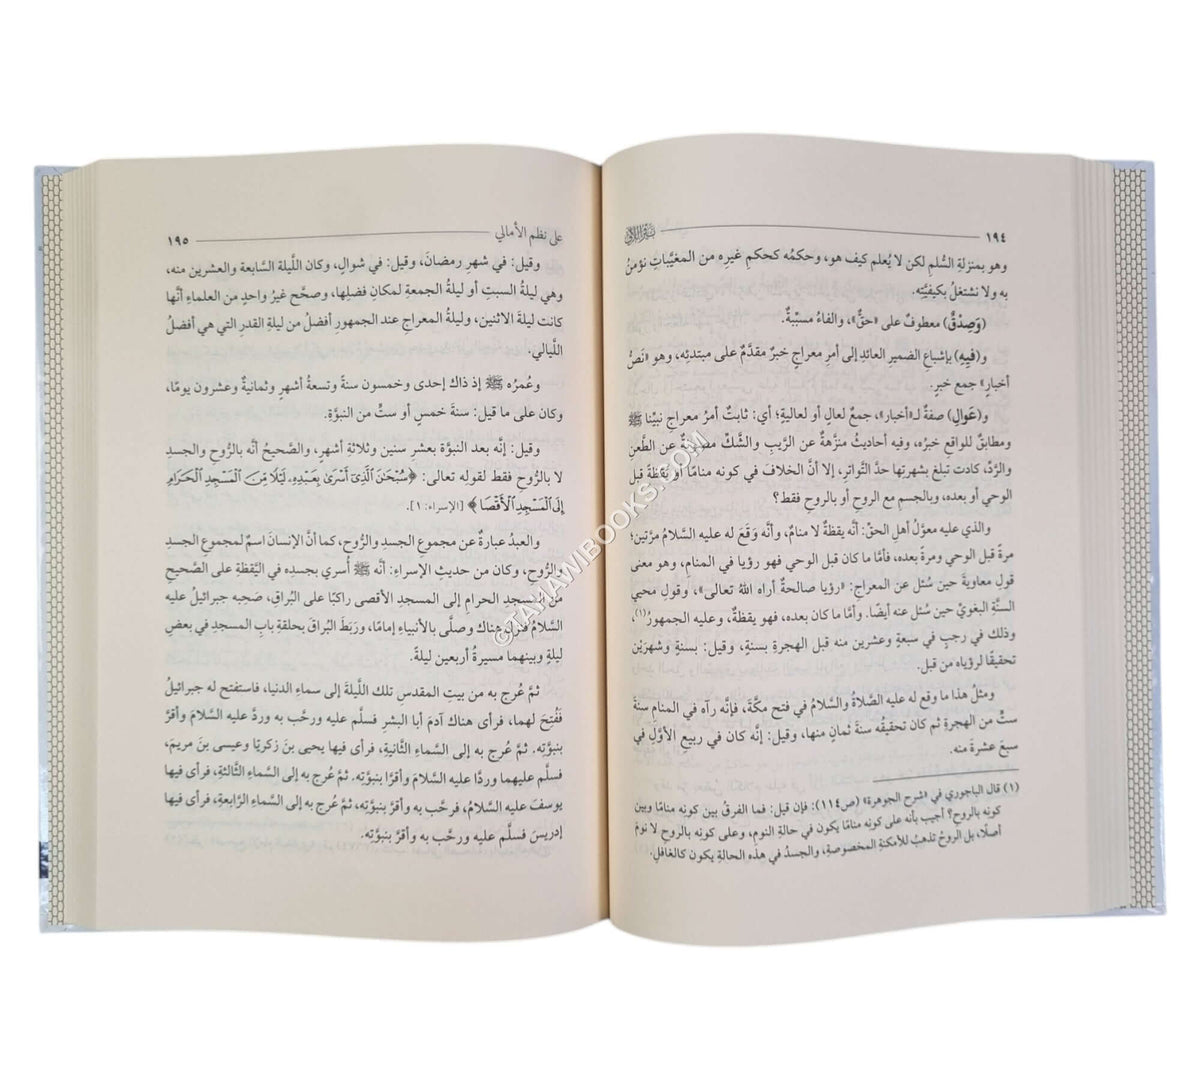 ١٩٤
نثر اللآلي
وهو بمنزلةِ السُّلم لكن لا يُعلم كيف هو، وحكمُه كحكمِ غيرِه من المغيَّباتِ نؤمنُ
به ولا نشتغلُ بكيفيَّته.
(وَصِدْقٌ) معطوفٌ على «حقٌّ»، والفاءُ مسبِّبةٌ.
و(فيهِ) بإشباعِ الضميرِ العائدِ إلى أمرِ معراجٍ خبرٌ مقدَّمٌ على مبتدئِه، وهو «نَصُّ
أخبارٍ» جمع خبرٍ.
و(عَوالٍ) صفةٌ لـ«أخبار»، جمعُ لعالٍ أو لعاليةٍ؛ أي: ثابتٌ أمرُ معراجِ نبيِّنا ﷺ
ومطابقٌ للواقعِ خبرُه، وفيه أحاديثُ منزَّهةٌ عن الرَّيبِ والشَّكِّ مصونةٌ عن الطَّعنِ
والرَّدِّ، كادت تبلغ بشهرتِها حدَّ التَّواترِ، إلا أنَّ الخلافَ في كونه منامًا أو يقظةً قبل
الوحي أو بعده، وبالجسمِ مع الروحِ أو بالروحِ فقط؟
والذي عليه معوَّل أهلِ الحقِّ: أنه يقظةٌ لا منامٌ، وأنَّه وَقَعَ له عليه السَّلامُ مرَّتين؛
مرةً قبل الوحي ومرةً بعده، فأمَّا ما كان قبل الوحي فهو رؤيا في المنامِ، وهو معنى
قولِ معاويةَ حين سُئل عن المعراجِ: «رؤيا صالحةٌ أراه اللهُ تعالى»، وقولِ محيي
السنَّةِ البغويِّ حين سُئل عنه أيضًا. وأمَّا ما كان بعده، فهو يقظةٌ، وعليه الجمهورُ(١)،
وذلك في رجبٍ في سبعةٍ وعشرين منه قبل الهجرةِ بسنةٍ، وقيل: بسنةٍ وشهرَيْن
تحقيقًا لرؤياه من قبل.
ومثلُ هذا ما وقع له عليه الصَّلاةُ والسَّلامُ في فتح مكَّةَ، فإنَّه رآه في المنامِ سنةَ
ستٍّ من الهجرةِ ثم كان تحقيقُه سنةَ ثمانٍ منها، وقيل: إنَّه كان في ربيعٍ الأوَّلِ في
سبعَ عشرةَ منه.
(١) قال الباجوري في «شرح الجوهرة» (ص١١٤): فإن قيل: فما الفرقُ بين كونِه منامًا وبين
كونِه بالروحِ؟ أجيب بأنه على كونِه منامًا يكون في حالةِ النومِ، وعلى كونِه بالروحِ لا نومَ
أصلًا، بل الروحُ تذهبُ للأمكنةِ المخصوصةِ، والجسدُ في هذه الحالةِ يكون كالغافلِ.
على نظم الأمالي
١٩٥
وقيل: في شهرِ رمضانَ، وقيل: في شوالٍ، وكان اللَّيلة السَّابعة والعشرين منه،
وهي ليلةُ السبتِ أو ليلةُ الجمعةِ لمكانِ فضلِها، وصحَّح غيرُ واحدٍ من العلماءِ أنَّها
كانت ليلةَ الاثنين، وليلةُ المعراجِ عند الجمهورِ أفضلُ من ليلةِ القدرِ التي هي أفضلُ
اللَّيالي.
وعُمرُه ﷺ إذ ذاك إحدى وخمسون سنةً وتسعةُ أشهرٍ وثمانيةٌ وعشرون يومًا،
وكان على ما قيل: سنةَ خمسٍ أو ستٍّ من النبوَّةِ.
وقيل: إنَّه بعد النبوَّةِ بعشرِ سنين وثلاثةِ أشهرٍ، والصَّحيحُ أنَّه بالرُّوحِ والجسدِ
لا بالرُّوحِ فقط لقوله تعالى: ﴿سُبْحَٰنَ ٱلَّذِىٓ أَسْرَىٰ بِعَبْدِهِۦ لَيْلًا مِّنَ ٱلْمَسْجِدِ ٱلْحَرَامِ
إِلَى ٱلْمَسْجِدِ ٱلْأَقْصَا﴾ [الإسراء: ١].
والعبدُ عبارةٌ عن مجموعِ الجسدِ والرُّوحِ، كما أنَّ الإنسانَ اسمٌ لمجموعِ الجسدِ
والرُّوحِ، وكان من حديثِ الإسراءِ: أنَّه ﷺ أُسري بجسدِه في اليَقظةِ على الصَّحيحِ
من المسجدِ الحرامِ إلى المسجدِ الأقصى راكبًا على البُراقِ، صَحِبه جبرائيلُ عليه
السَّلامُ فنزل هناك وصلَّى بالأنبياءِ إمامًا، ورَبَطَ البُراقَ بحلقةِ بابِ المسجدِ في بعضِ
ليلةٍ وبينهما مسيرةُ أربعين ليلةً.
ثمَّ عُرج به من بيتِ المقدسِ تلك اللَّيلةَ إلى سماءِ الدنيا، فاستفتح له جبرائيلُ
فَفُتِحَ لهما، فرأى هناك آدمَ أبا البشرِ فسلَّم عليه ورحَّب به وردَّ عليه السَّلامَ وأقرَّ
بنبوَّتِه. ثمَّ عُرج به إلى السَّماءِ الثَّانيةِ، فرأى فيها يحيى بنَ زكريَّا وعيسى بنَ مريمَ،
فسلَّم عليهما وردَّا عليه السَّلامَ وأقرَّا بنبوَّتِه. ثمَّ عُرج به إلى السَّماءِ الثَّالثةِ، فرأى فيها
يوسفَ عليه السَّلامُ، فرحَّب به وأقرَّ بنبوَّتِه، ثمَّ عُرج به إلى السَّماءِ الرَّابعةِ، فرأى فيها
إدريسَ فسلَّم عليه ورحَّب به وأقرَّ بنبوَّتِه.
©TAHAWIBOOKS.COM